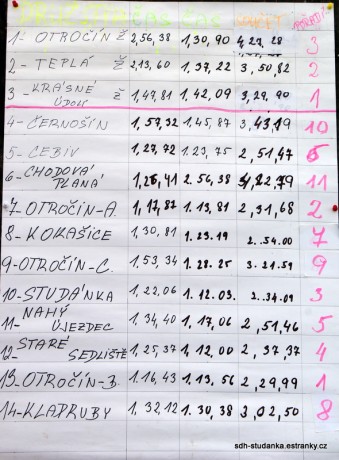 DRUŽSTVA ČAS ČAS VÝSLEDNÝ POŘADÍ
1- OTROČÍN Ž 2,56,38 1,30,90 4,27,28 3
2- TEPLÁ Ž 2,13,60 1,37,22 3,50,82 2
3- KRÁSNÉ ÚDOLÍ Ž 1,47,81 1,42,09 3,29,90 1
4- ČERNOŠÍN 1,57,32 1,45,87 3,43,19 10
5- CEBIV 1,27,72 1,23,75 2,51,47 6
6- CHODOVÁ PLANÁ 1,26,41 2.56,38 4,22,79 11
7-OTROČÍN-A. 1,17,87 1.13,81 2,31,68 2
8- KOKAŠICE 1,30,81 1.23.19 2..54.00 7
9-OTROČÍN-C. 1,53,34 1.28.25 3.21.59 9
10-STUDÁNKA 1,22,06 1.12.03. 2..34.09 3
11- NAHÝ ÚJEZDEC 1,34,40 1,17,06 2,51,46 5
12- STARÉ SEDLIŠTĚ 1,25,37 1,12,00 2,37,37 4
13-OTROČÍN-B. 1.16,43 1,13,56 2,29,99 1
14-KLADRUBY 1,32,12 1,30,38 3,02,50 8
sdh-studanka.estranky.cz